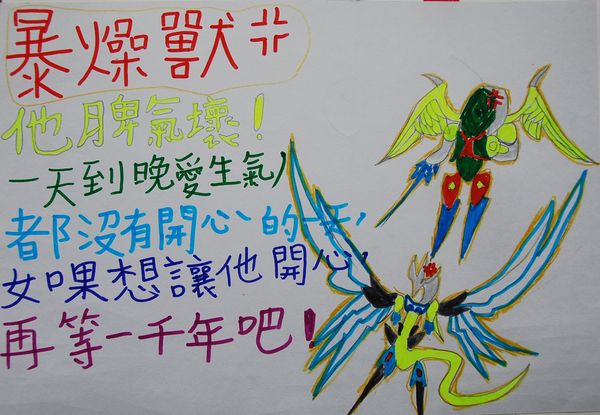 暴燥獸
他脾氣壞！
一天到晚愛生氣，
都沒有開心的一天，
女口果想讓他開心，
再等一千年吧！